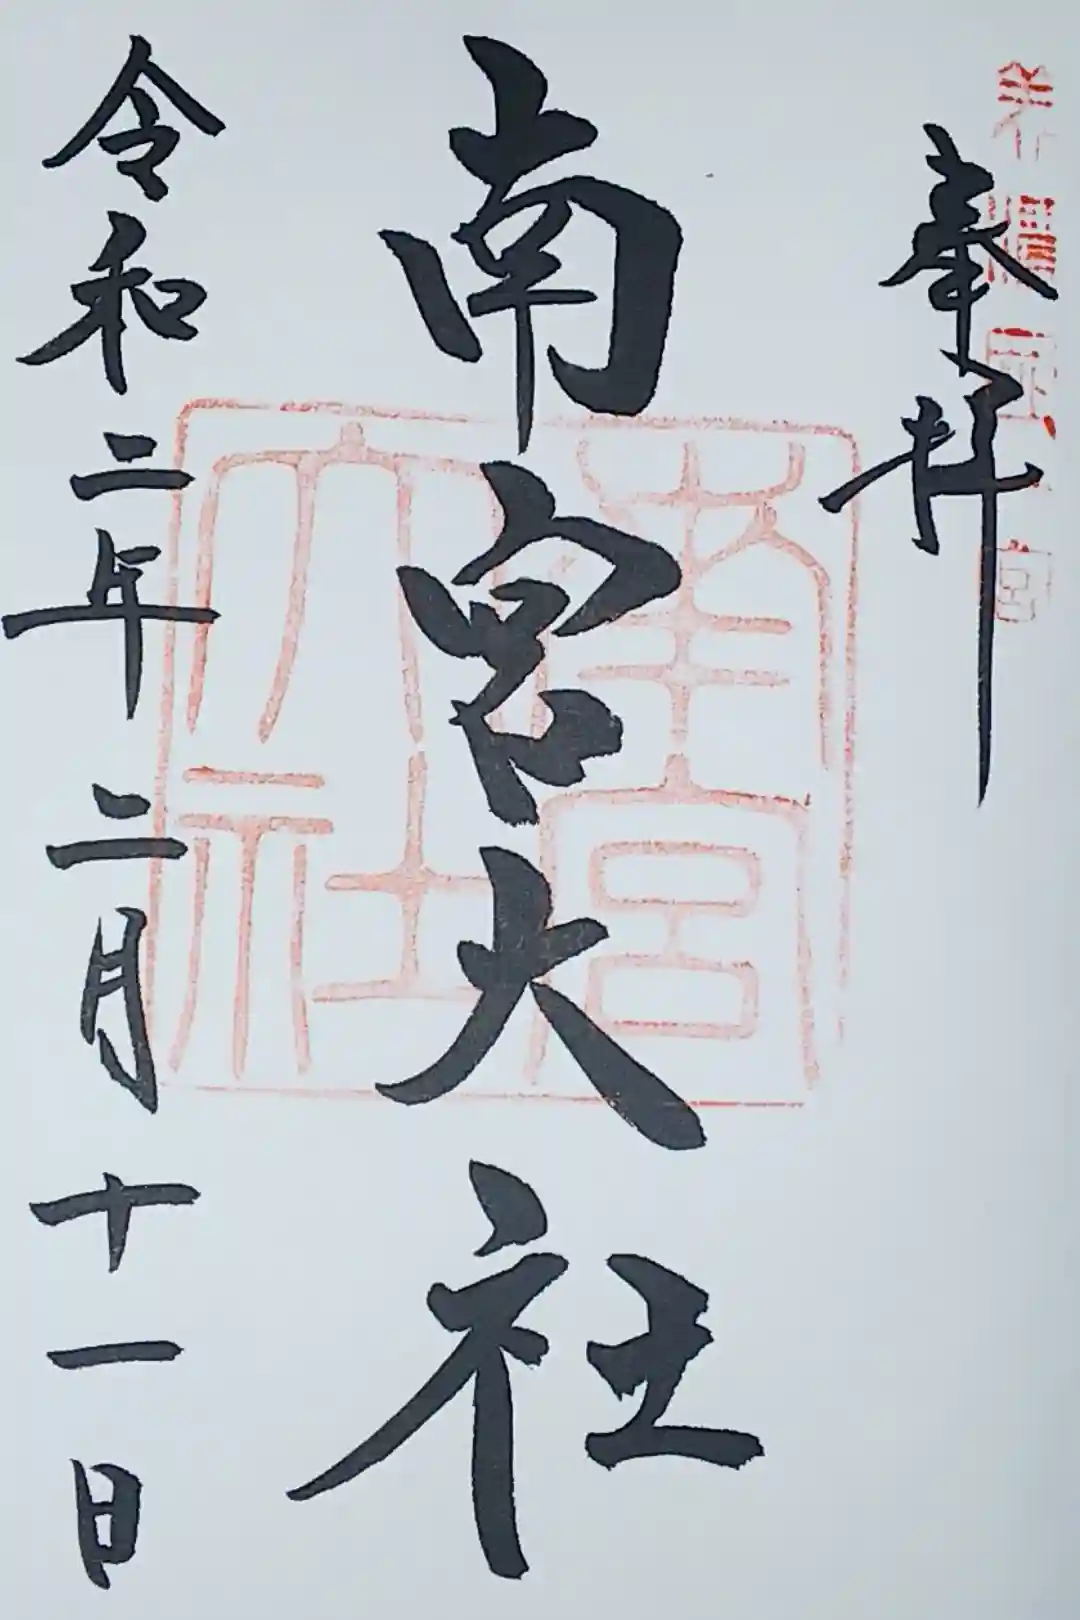 奉拝
南宮大社
南宮大社
令和二年二月十一日